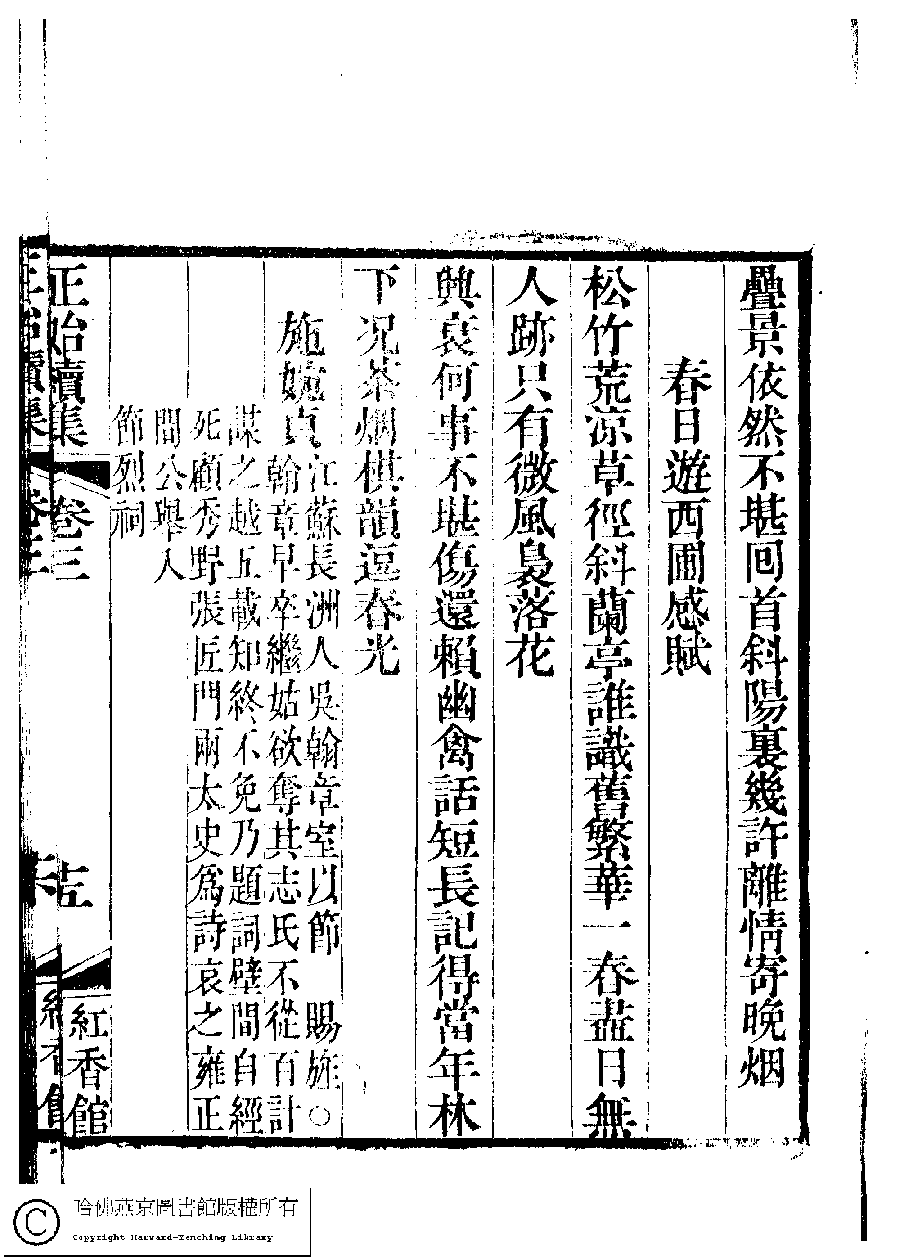 疊景依然不堪回首斜陽裏幾許離情寄晚烟
春日遊西圃感賦
松竹荒涼草徑斜蘭亭誰識舊繁華一春盡日無
人跡只有微風裊落花
興衰何事不堪傷還賴幽禽話短長記得當年林
下況茶烟棋韻逗春光
施婉真
江蘇長洲人吳翰章室以節 賜旌○
翰章早卒繼姑欲奪其志氏不從百計
謀之越五載知終不免乃題詞壁間自經
死顧秀野張匠門兩太史爲詩哀之雍正
間公舉入
節烈祠
正始續集 卷三
紅香館
哈佛燕京圖書館版權所有
Copyright Harvard-Yenching Library